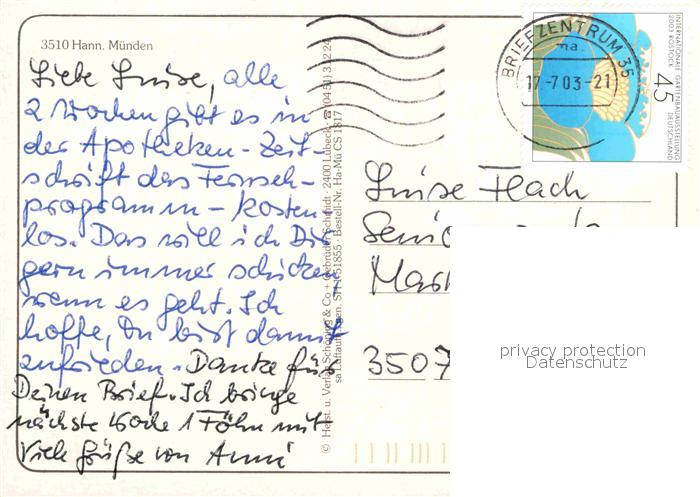 3510 Hann. Münden
Liebe Luise, alle
2 Wochen gibt es in
der Apotheken-Zeit-
schrift das Fernseh-
programm - kosten
los. Das will ich Dir
gern immer schicken
wenn es geht. Ich
hoffe, Du bist damit
zufrieden. Danke für
Deinen Brief. Ich bringe
nächste Woche 1 Föhn mit
Viele Grüße von Anni
© Herst. u. Verlag Schöning & Co + Gebrüder Schmidt · 2400 Lübeck · ☎ (0451) 31224
sa Luftaufnahmen · Bestell-Nr. Ha-Mü CS 1817
BRIEFZENTRUM 36
na
17.-7.03-21
45
INTERNATIONALE GARTENBAUAUSSTELLUNG
2003 ROSTOCK DEUTSCHLAND
Luise Flach
Mar
3507
privacy protection
Datenschutz